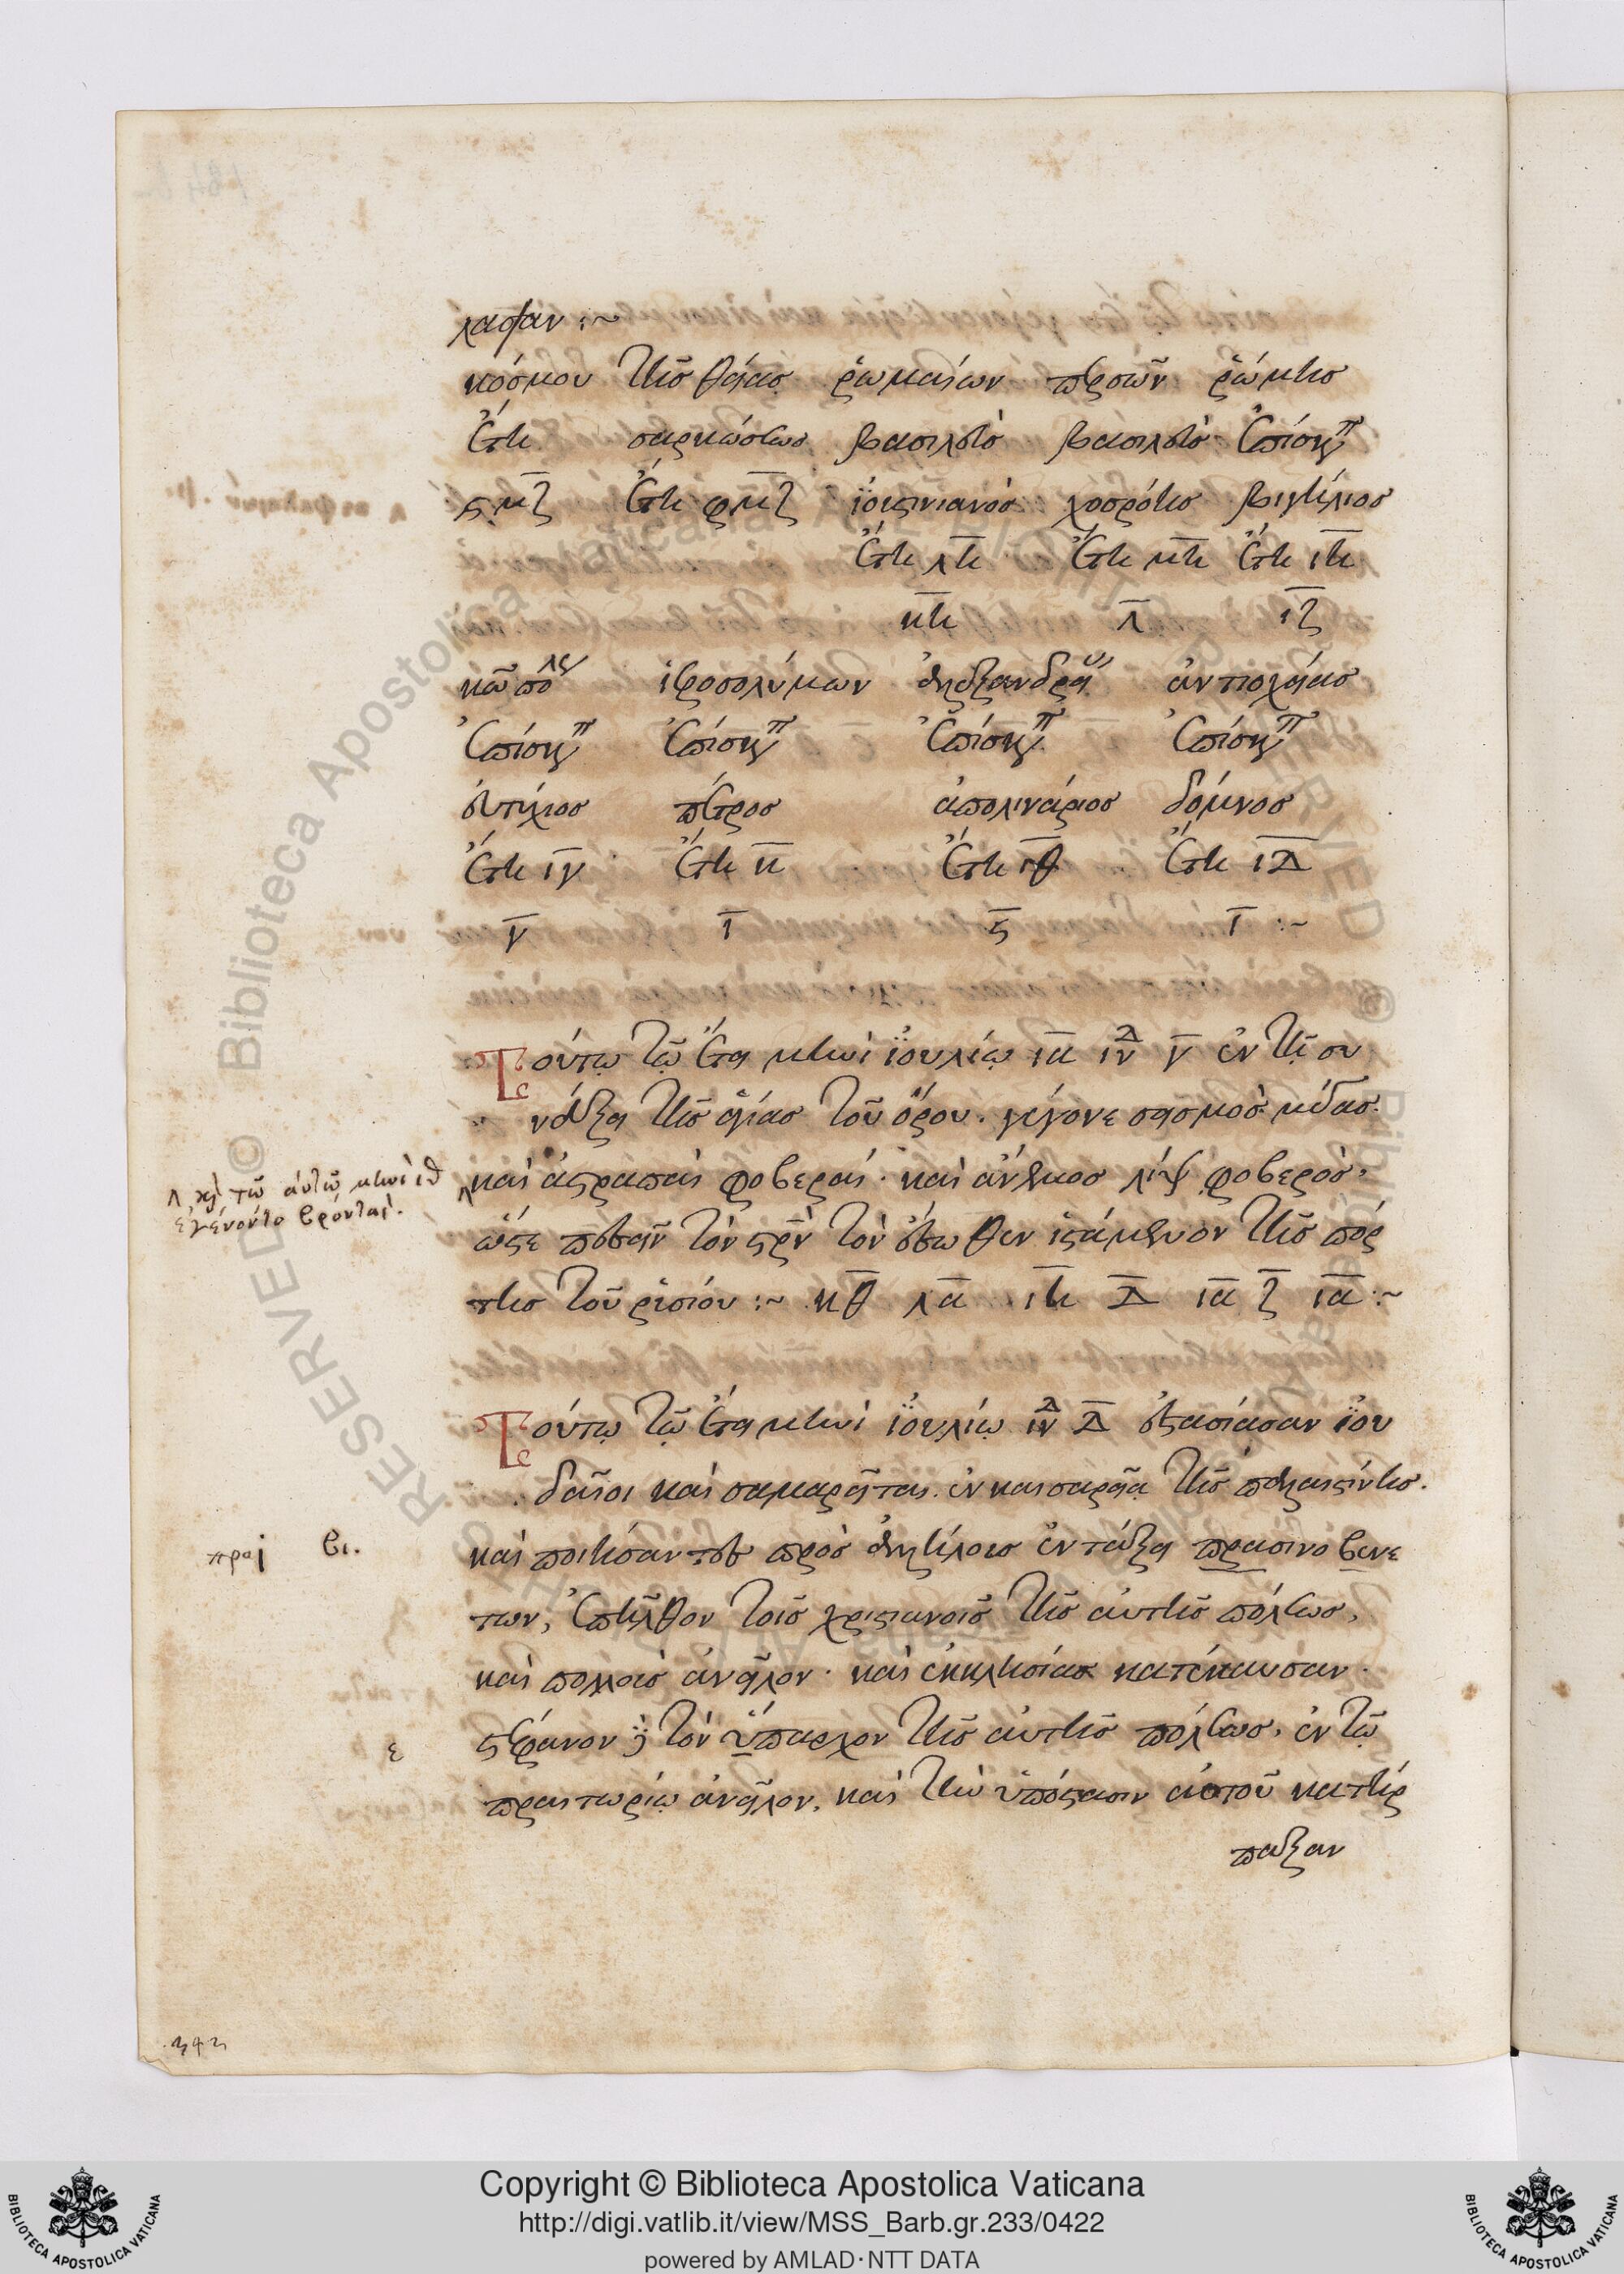 λαψαν :~
κόσμου τῆς θείας ῥωμαίων περσῶν ῥώμης
ἔτη σαρκώσεως βασιλεὺς βασιλεὺς ἐπίσκοπ
ϛμζ ἔτη φμζ ἰουστινιανὸς χοσρόης βιγήλιος
ἔτη λη ἔτη μη ἔτη ιη
κη λ ιζ
κων πόλεως ἱεροσολύμων ἀλεξανδρείας ἀντιοχείας
ἐπίσκπ ἐπίσκπ ἐπίσκπ ἐπίσκπ
εὐτύχιος πέτρος ἀπολινάριος δόμνος
ἔτη ιγ ἔτη κ ἔτη ιθ ἔτη ιδ
γ ι ϛ ι :~
Τούτῳ τῷ ἔτει μηνὶ ἰουλίῳ ια ινδ γ ἐν τῇ συ
νάξει τῆς ἁγίας τοῦ ὄρου. γέγονε σεισμὸς μέγας.
καὶ ἀστραπαὶ φοβεραί. καὶ ἄνεμος λίψ φοβερὸς,
Λ καὶ τῶ αὐτῶ μηνὶ ιθ
ἐγένοντο βρονταὶ.
ὥστε πεσεῖν τὸν στρν τὸν ἔσωθεν ἱστάμενον τῆς πόρ
της τοῦ ῥισίου :~ κθ λα ιη δ ια ζ ια :~
Τούτῳ τῷ ἔτει μηνὶ ἰουλίῳ ινδ δ ἐστασίασαν ἰου
δαῖοι καὶ σαμαρεῖται. ἐν καισαρείᾳ τῆς παλαιστίνης.
καὶ ποιήσαντες πρὸς ἀλλήλους ἐν τάξει πρασινοβενε
πραι βι.
των, ἐπῆλθον τοῖς χριστιανοῖς τῆς αὐτῆς πόλεως,
καὶ πολλοὺς ἀνεῖλον. καὶ ἐκκλησίας κατέκαυσαν.
στέφανον δὲ τὸν ὕπαρχον τῆς αὐτῆς πόλεως. ἐν τῷ
ε
πραιτωρίῳ ἀνεῖλον, καὶ τὴν ὑπόστασιν αὐτοῦ κατήρ
παξαν
Copyright © Biblioteca Apostolica Vaticana
http://digi.vatlib.it/view/MSS_Barb.gr.233/0422
powered by AMLAD·NTT DATA
BIBLIOTECA APOSTOLICA VATICANA
BIBLIOTECA APOSTOLICA VATICANA